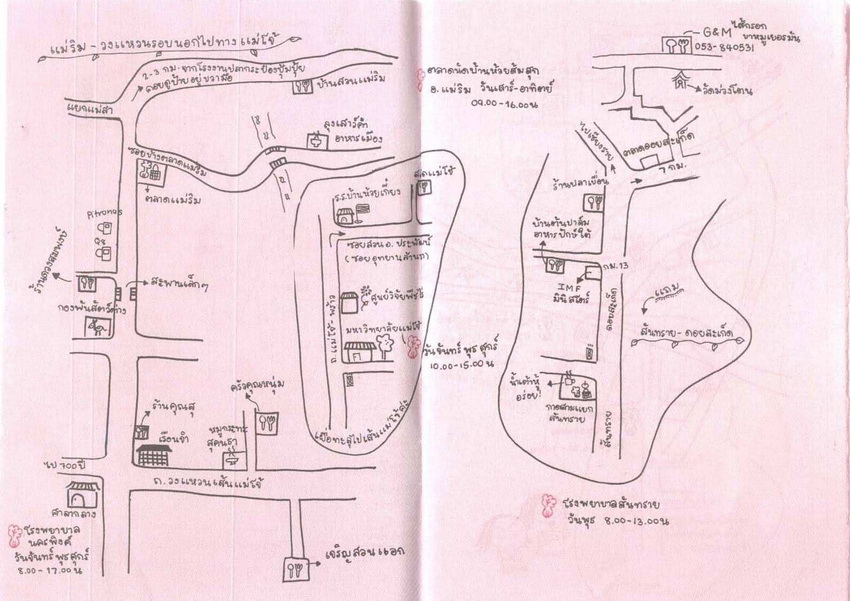 แม่ริม - วงแหวนรอบนอกไปทางแม่โจ้
2-3 กม. จากโรงงานปลากระป๋องปุ้มปุ้ย
คอยดูป้ายอยู่ขวามือ
บ้านสวนแม่ริม
แยกแม่สา
ลุงเสาร์คำ
อาหารเมือง
ซอยข้างตลาดแม่ริม
ตลาดแม่ริม
Pitronas
98
ร้านดวงสมพงษ์
สะพานเล็กๆ
กองพันสัตว์ต่าง
ร.ร.บ้านห้วยเกี๋ยง
สุดแม่โจ้
ซอยสวน อ. ประพัฒน์
(ซอยอุทยานล้านนา)
ศูนย์วิจัยพืชไร่
มหาวิทยาลัยแม่โจ้
วันจันทร์ พุธ ศุกร์
10.00-15.00 น
ร้านคุณสุ
เรือนจำ
ครัวคุณหนุ่ม
หมูกระทะ
สุคนธา
ไป 700 ปี
ศาลากลาง
ถ. วงแหวนเส้นแม่โจ้
โรงพยาบาล
นครพิงค์
วันจันทร์ พุธ ศุกร์
8.00 - 17.00 น
เจริญสวนแอก
ตลาดนัดบ้านห้วยส้มสุก
อ. แม่ริม วันเสาร์-อาทิตย์
09.00-16.00 น
G&M ไส้กรอก
ขาหมูเยอรมัน
053-840531
วัดม่วงโตน
ไปเชียงราย
ตลาดดอยสะเก็ด
7 กม.
ร้านปลาเผื่อน
บ้านต้นปาล์ม
อาหารปักษ์ใต้
กม. 13
IMF
มินิสโตร์
ดอยสะเก็ด
แถม
สันทราย - ดอยสะเก็ด
น้ำเต้าหู้
อร่อย!
กาดสามแยก
สันทราย
สันทราย
โรงพยาบาลสันทราย
วันพุธ 8.00-13.00 น